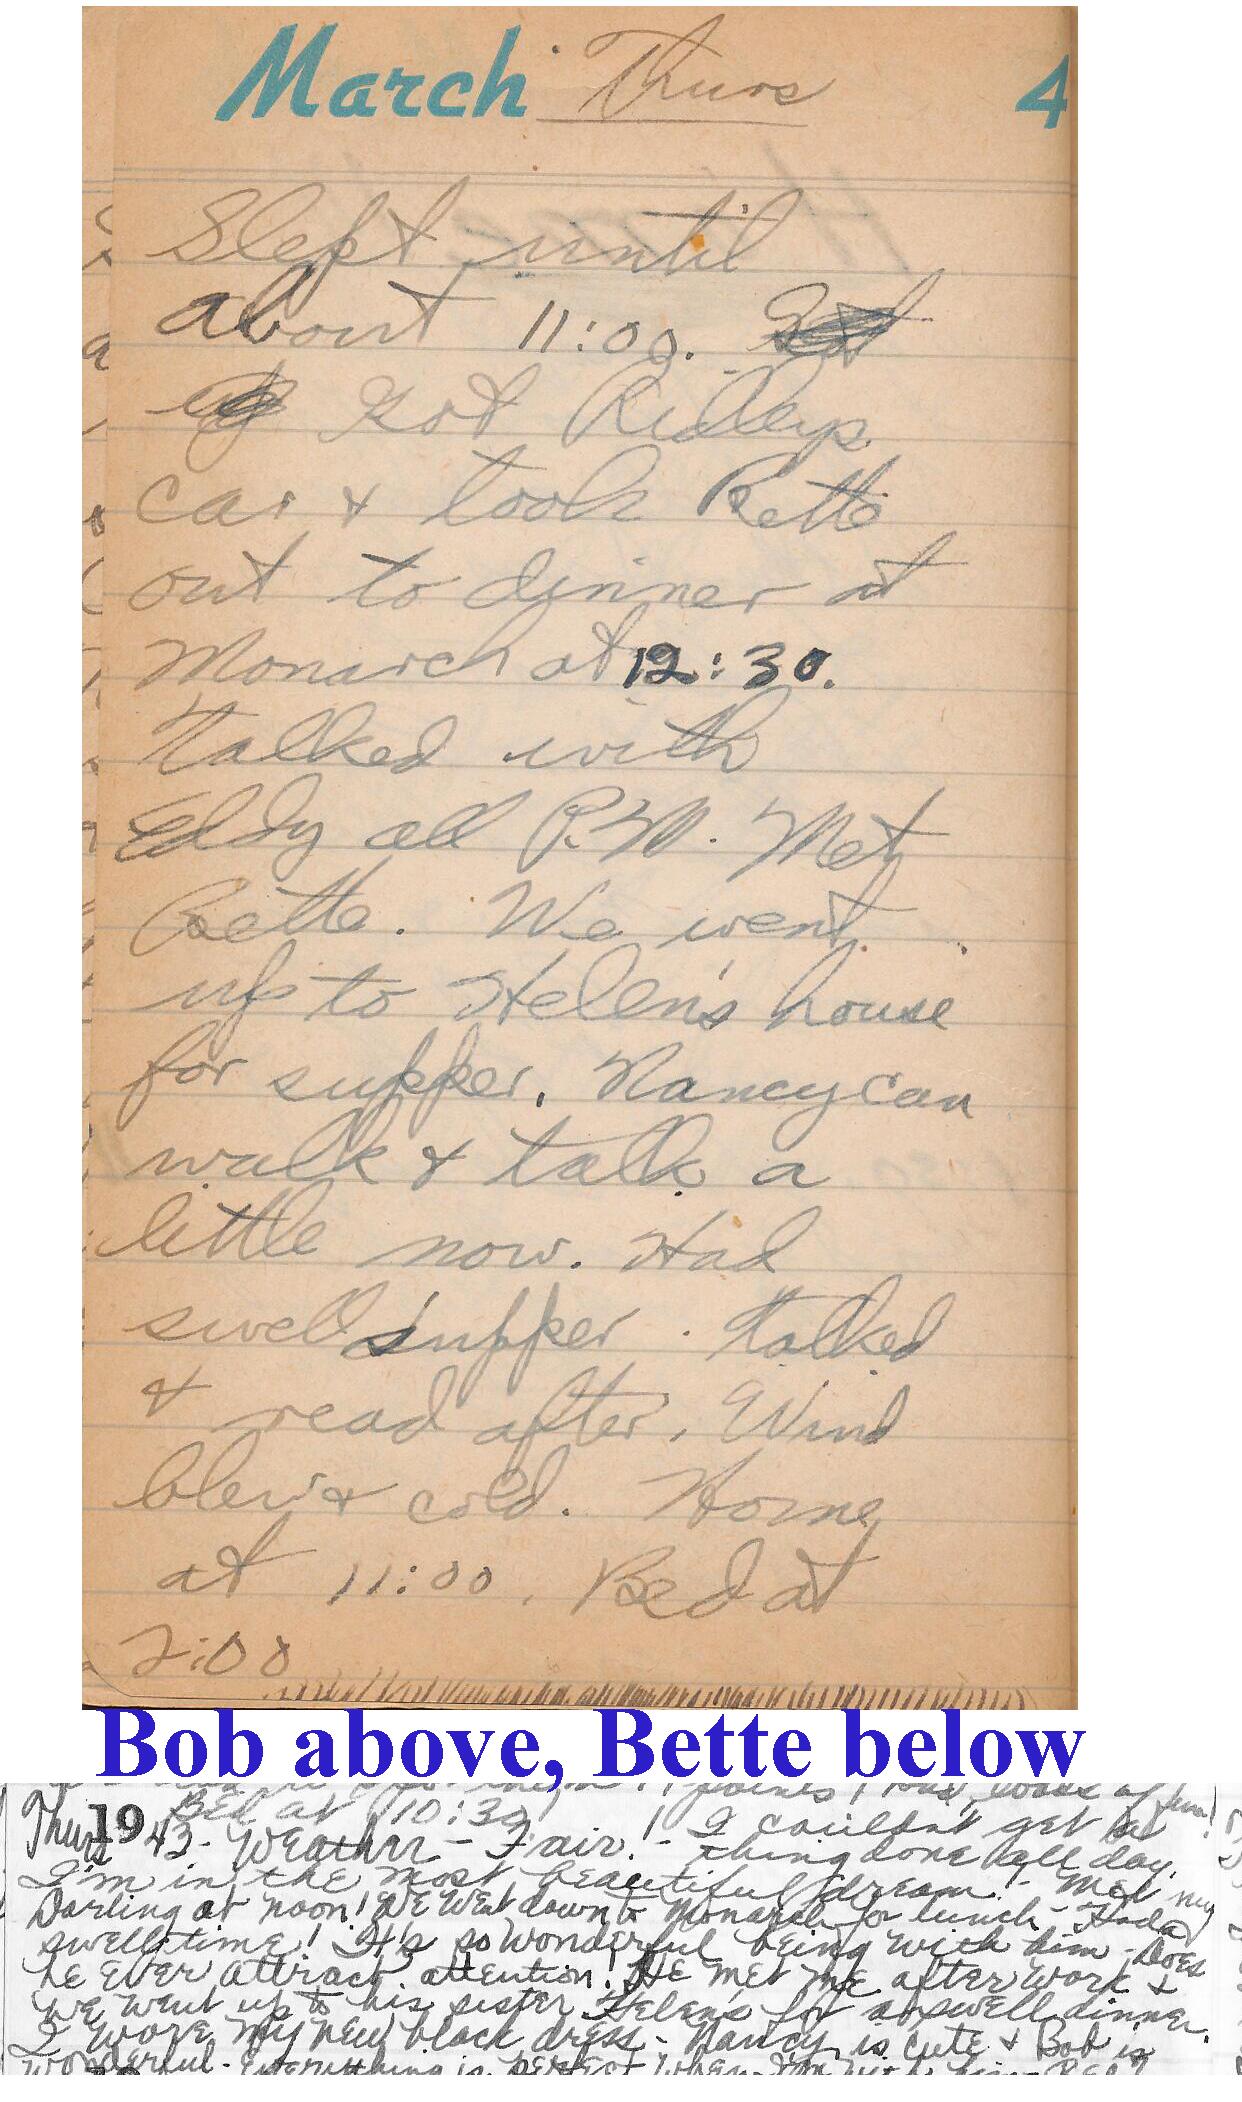 March Thurs 4
Slept until
about 11:00.
Got Ridleys
car & took Bette
out to dinner at
Monarch at 12:30.
Talked with
Eddy all P.M. Met
Bette. We went
up to Helen's house
for supper. Nancy can
walk & talk a
little now. Had
swell supper. Talked
& read after. Wind
blew & cold. Home
at 11:00. Bed at
2:00
Bob above, Bette below
Bed at 10:30
Thurs 1943 - Weather - Fair! - I couldn't get a
thing done all day.
I'm in the most beautiful dream! - Met my
Darling at noon! We went down to Monarch for lunch - Had a
swell time! It's so wonderful being with him - Does
he ever attract attention! He met me after work &
we went up to his sister Helen's for a swell dinner.
I wore my new black dress - Nancy is cute & Bob is
wonderful - Everything is perfect when I'm with him -